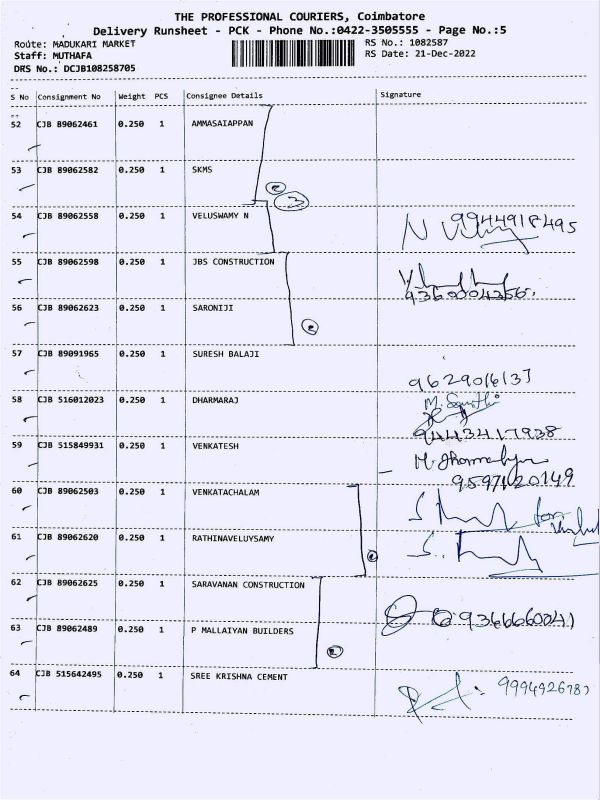 THE PROFESSIONAL COURIERS, Coimbatore
Delivery Runsheet - PCK - Phone No.:0422-3505555 - Page No.:5
Route: MADUKARI MARKET RS No.: 1082587
Staff: MUTHAFA RS Date: 21-Dec-2022
DRS No.: DCJB108258705
S No Consignment No Weight PCS Consignee Details Signature
52 CJB 89062461 0.250 1 AMMASAIAPPAN
53 CJB 89062582 0.250 1 SKMS
3
54 CJB 89062558 0.250 1 VELUSWAMY N 9944918495
55 CJB 89062598 0.250 1 JBS CONSTRUCTION
9360004356
56 CJB 89062623 0.250 1 SARONIJI
57 CJB 89091965 0.250 1 SURESH BALAJI
9629016137
58 CJB 516012023 0.250 1 DHARMARAJ
9443417938
59 CJB 515849931 0.250 1 VENKATESH
9597120149
60 CJB 89062503 0.250 1 VENKATACHALAM
61 CJB 89062620 0.250 1 RATHINAVELUYSAMY
62 CJB 89062625 0.250 1 SARAVANAN CONSTRUCTION
9366660041
63 CJB 89062489 0.250 1 P MALLAIYAN BUILDERS
64 CJB 515642495 0.250 1 SREE KRISHNA CEMENT 9994926787